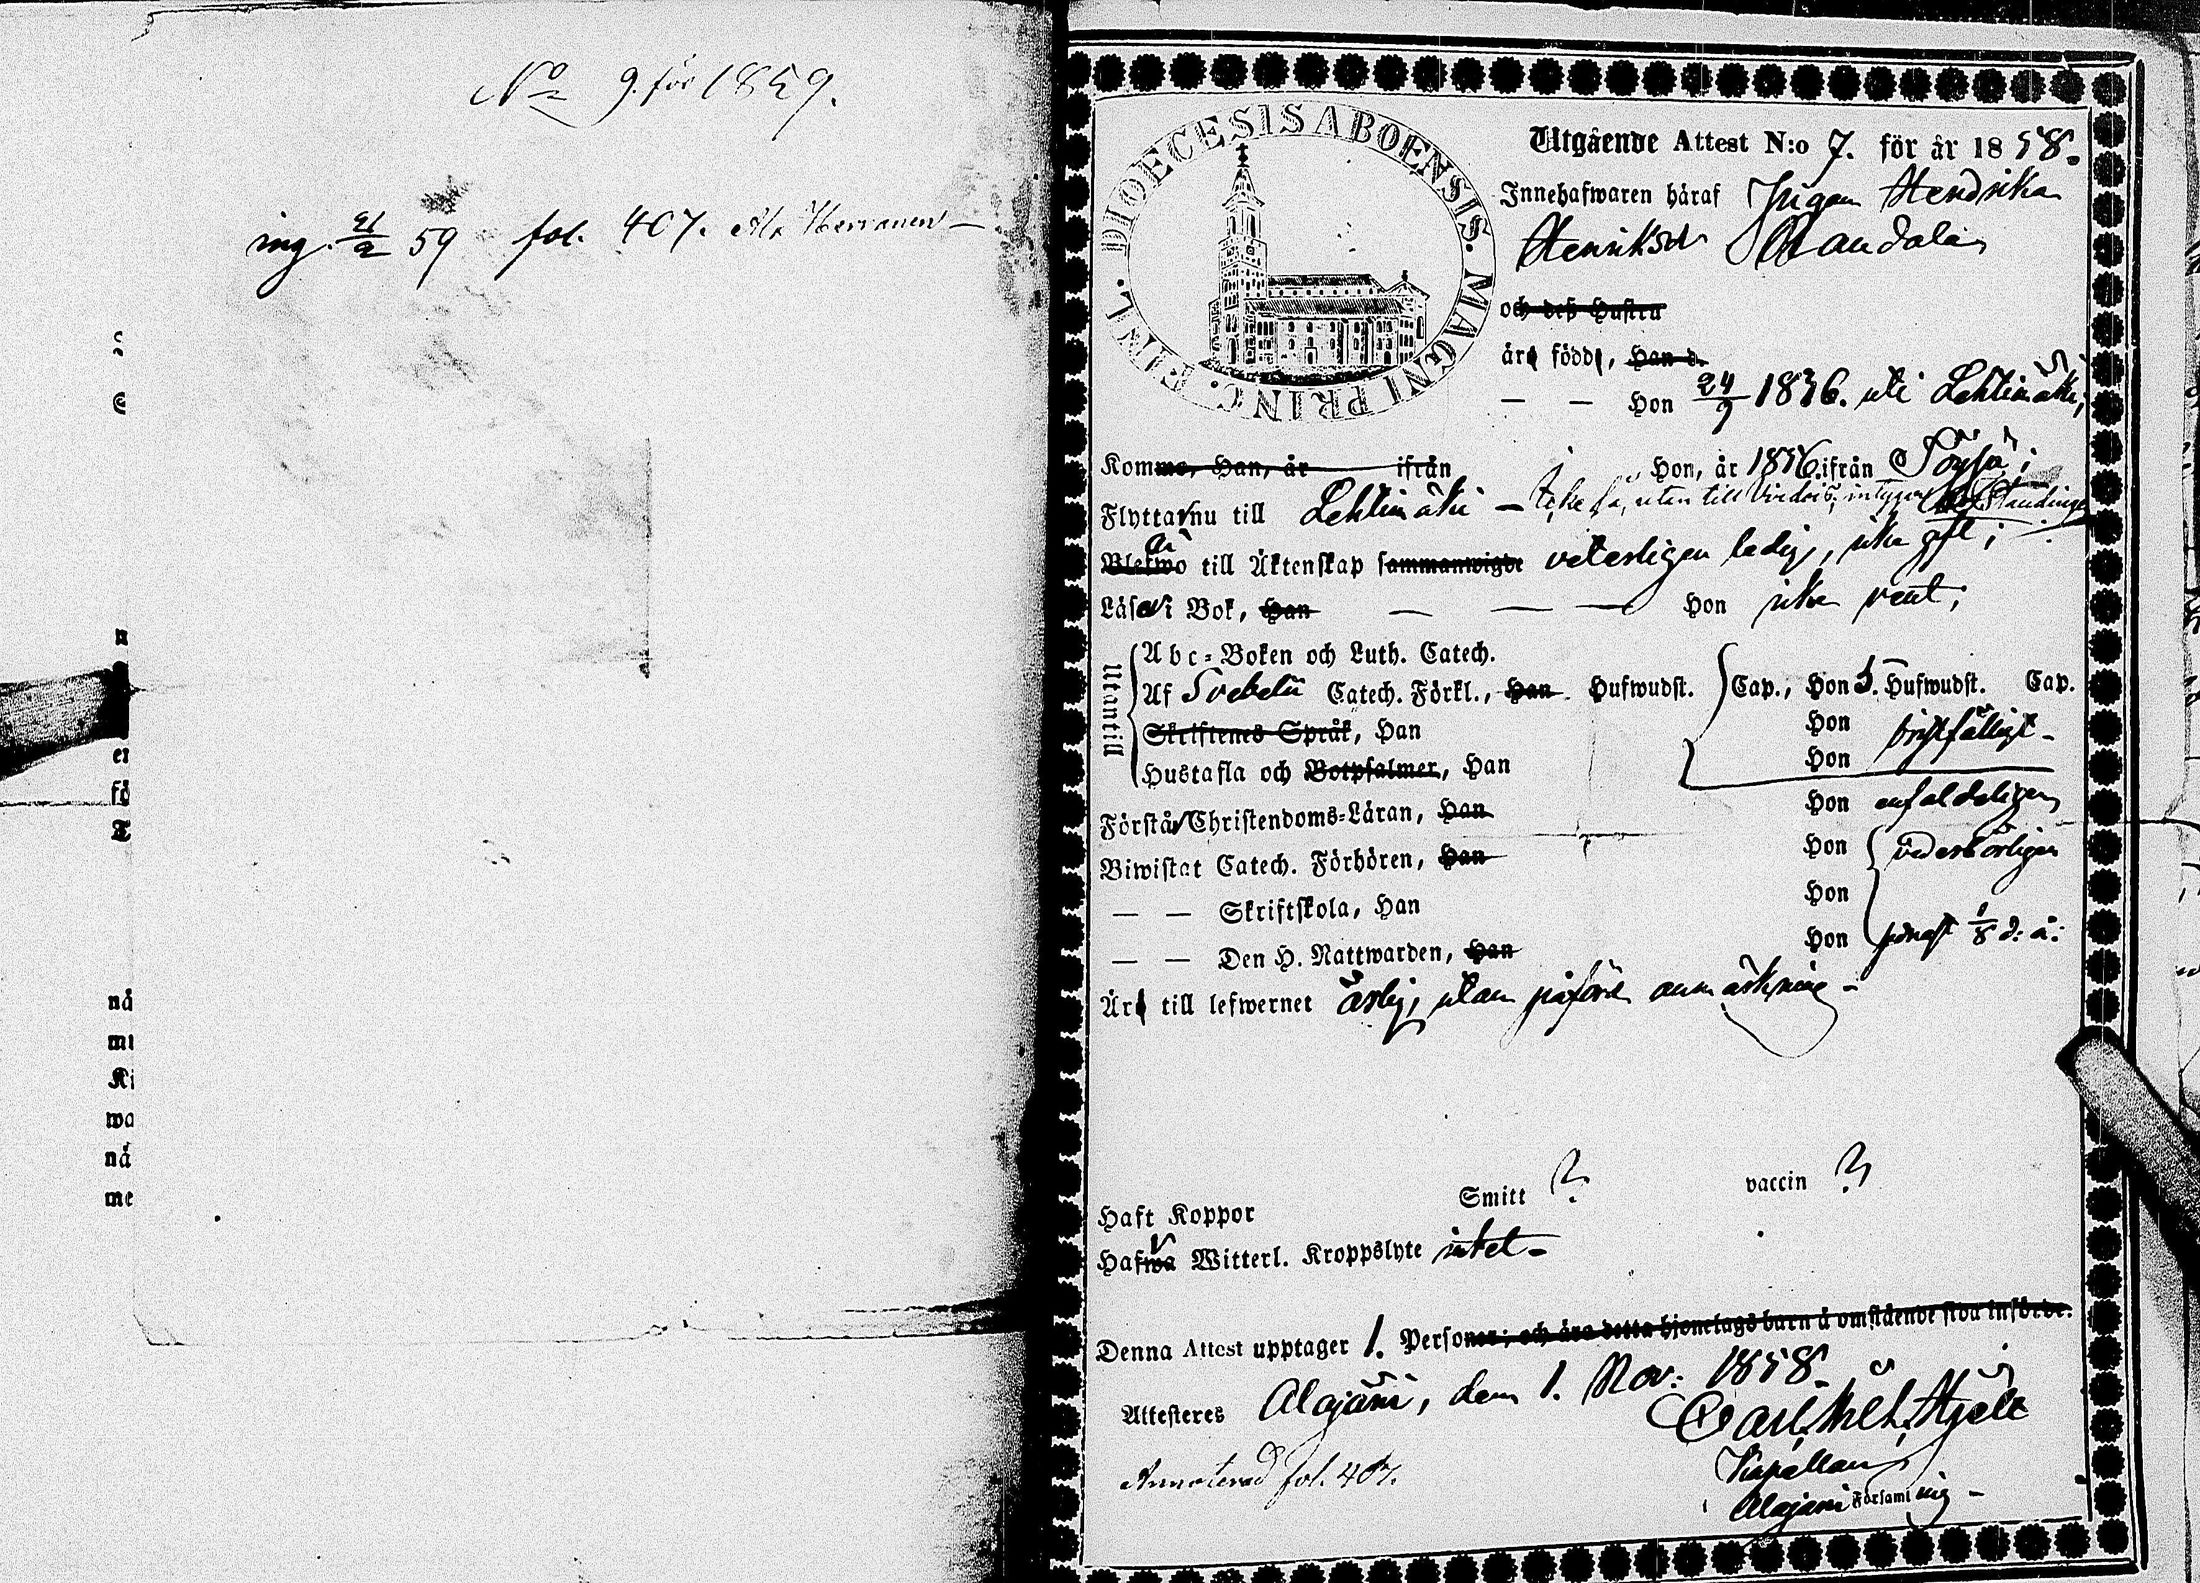 No 9. för 1859.
ing. 21/2 59 fol. 407.
nå
mu
Ki
wa
nå
me
DIOECESIS ABOENSIS. MAGNI PRINC. FINL.
Utgående Attest N:o 7. för år 1858.
Innehafwaren håraf Pigan Hendrika
Henriksdr Mandala
och deß Hustru
äro födde, Han d.
— — Hon 24/9 1836. uti Lehtimäki,
Komne, Han, år ifrån Hon, år 1856. ifrån Töysä;
Flyttar nu till Lehtimäki — icke så, utan till Vindois, intygar
Blefwo till Äktenskap sammanwigde veterligen ledig, icke gift;
Läser i Bok, Han — — — Hon icke rent;
Utantill
Abc-Boken och Luth. Catech.
Af Svebelii Catech. Förkl., Han Hufwudst. Cap., Hon 5. Hufwudst. Cap.
Skriftenes Språk, Han Hon bristfälligt –
Hustafla och Botpsalmer, Han Hon
Förstår Christendoms-Läran, Han Hon enfaldeligen
Biwistat Catech. Förhören, Han Hon vederbörligen
— — Skriftskola, Han Hon
— — Den H. Nattwarden, Han Hon sednast 1/8 d: å:
Äro till lefwernet ärlig, utan påförd anmärkning –
Haft Koppor Smitt ? vaccin ?
Hafwa Witterl. Kroppslyte intet –
Denna Attest upptager 1. Personer; och äro detta hjonelags barn å omstående sida införde.
Attesteres Alajärvi, dem 1. Nov: 1858.
Carl Wilh. Hjelt
Kapellan
Alajärvi Församling –
Annoterad fol. 407.